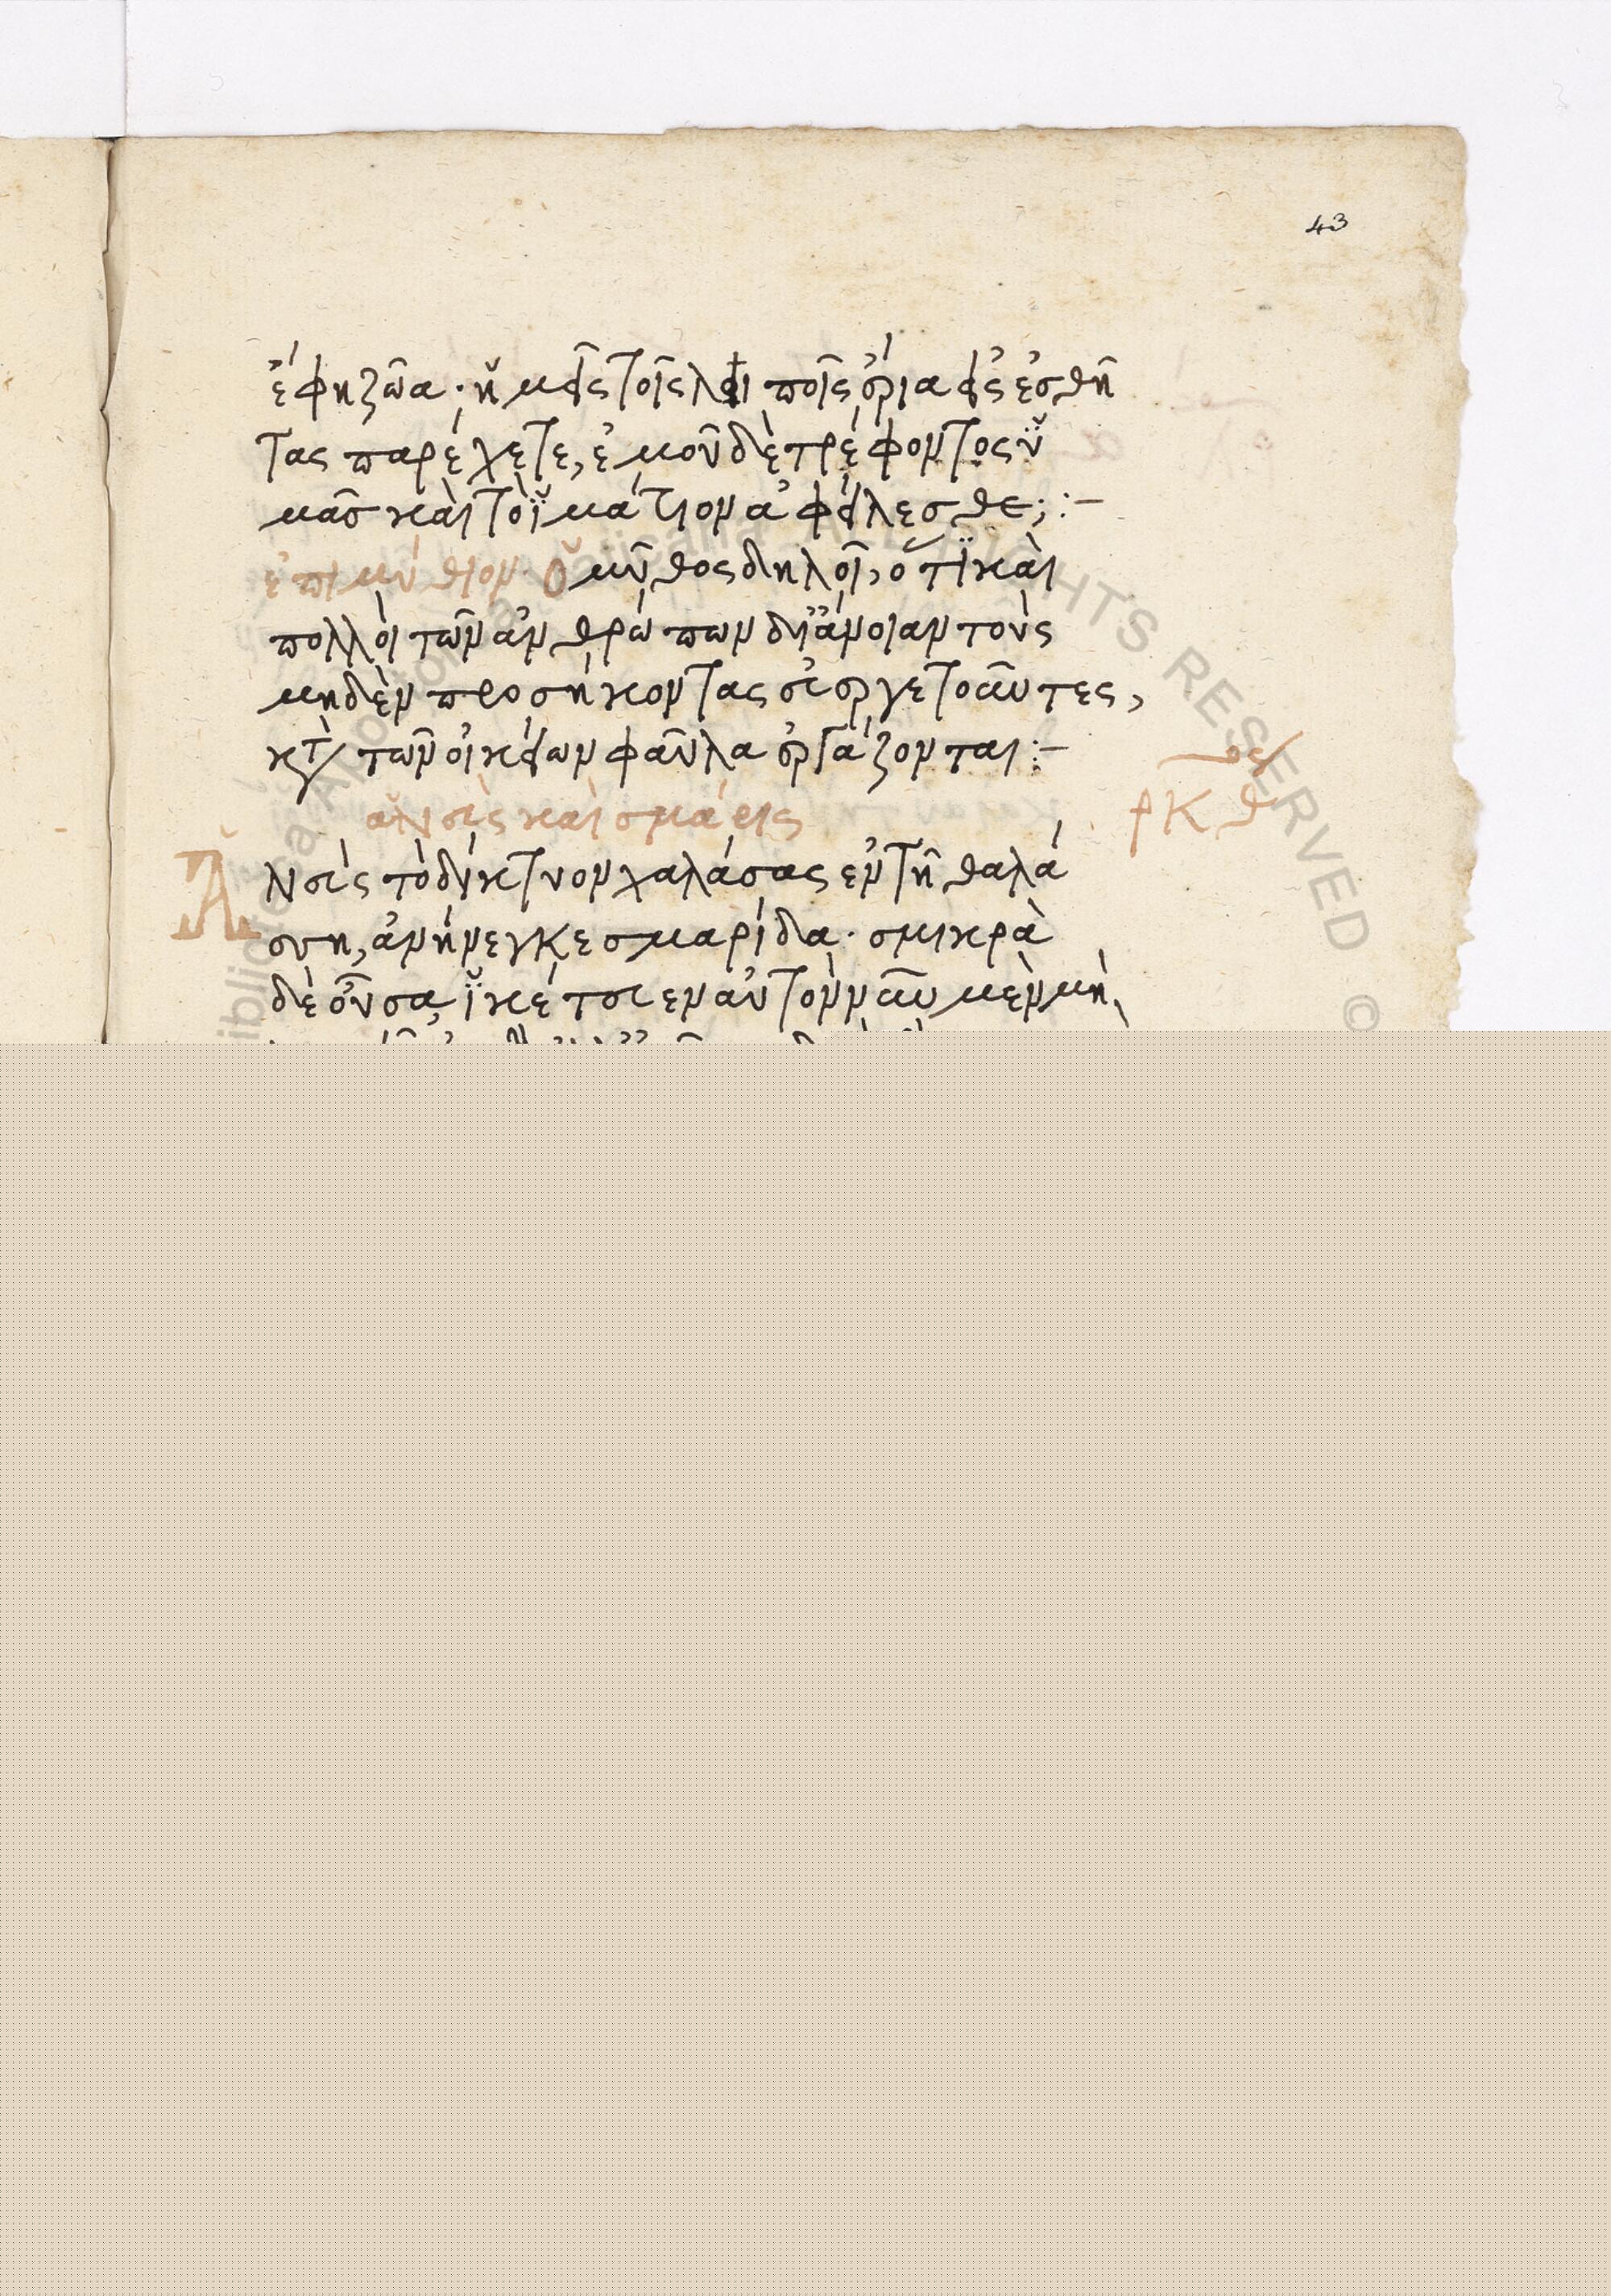 43
ἔφη ζῶα· ἡμεῖς τοῖς λοιποῖς ἔρια εἰς ἐσθῆ
τας παρέχετε, ἐμοῦ δὲ τρέφοντος ὑ
μᾶσ καὶ τὸ ἱμάτιον ἀφείλεσθε; :-
ἐπιμύθιον· Ὁ μῦθος δηλοῖ, ὅτι καὶ
πολλοὶ τῶν ἀνθρώπων δι' ἄνοιαν τοὺς
μηδὲν προσήκοντας εὐεργετοῦντες,
κτὰ τῶν οἰκείων φαῦλα ἐργάζονται :-
ἁλιεὺς καὶ σμάρις
ρκθ
Ἁ
λιεὺς τὸ δίκτυον χαλάσας ἐν τῇ θαλά
σση, ἀνήνεγκε σμαρίδα· σμικρὰ
δὲ οὖσα, ἱκέτευεν αὐτὸν νῦν μὲν μὴ